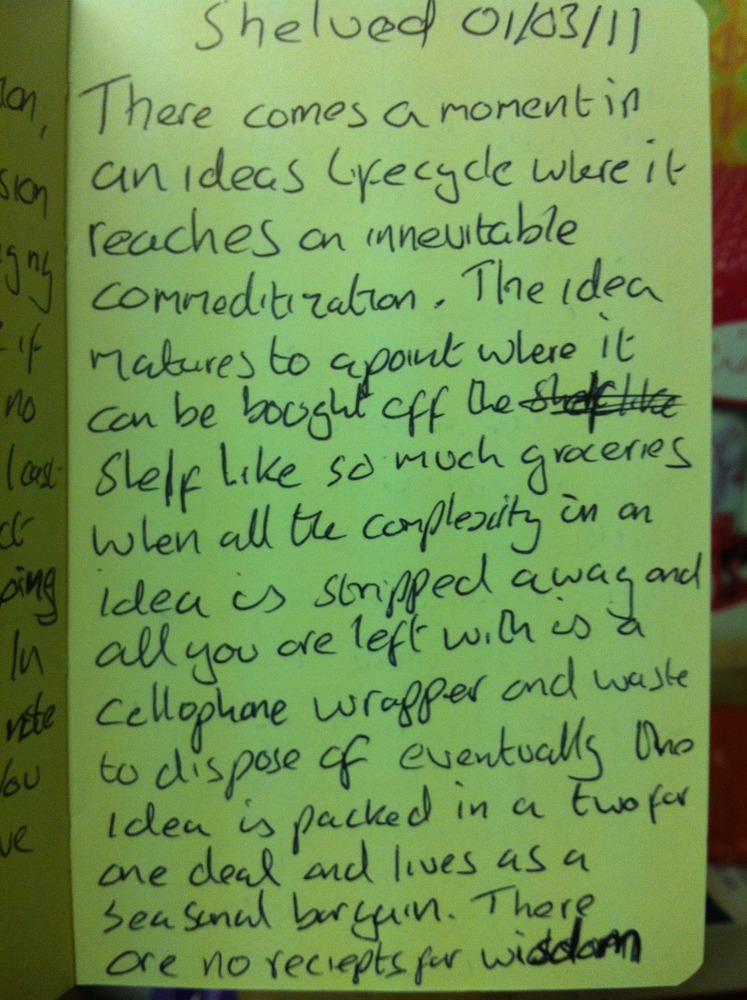 Shelved 01/03/11
There comes a moment in
an ideas lifecycle where it
reaches an innevitable
commeditization. The idea
matures to a point where it
can be bought off the shelf like
shelf like so much groceries
when all the complexity in an
idea is stripped away and
all you are left with is a
cellophane wrapper and waste
to dispose of eventually the
idea is packed in a two for
one deal and lives as a
seasonal bargain. There
are no reciepts for wisdom
sion
if
no
ping
In
ve